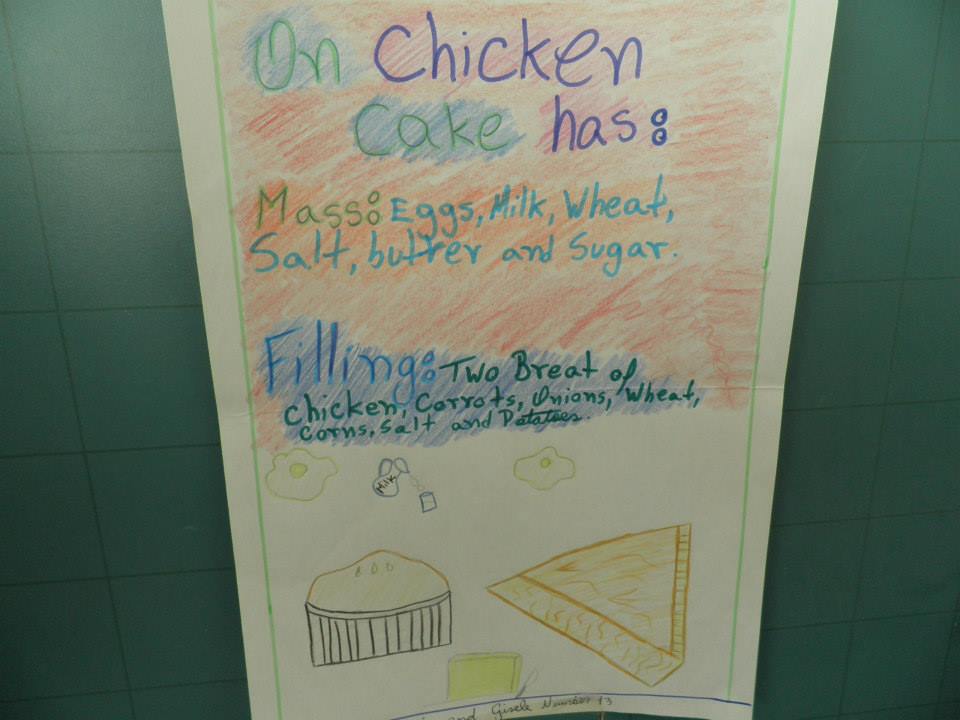 On Chicken
Cake has:
Mass: Eggs, Milk, Wheat,
Salt, butrer and Sugar.
Filling: Two Breat of
chicken, Corrots, Onions, Wheat,
Corns, Salt and Potatoes.
Milk
and Gisele Number 13